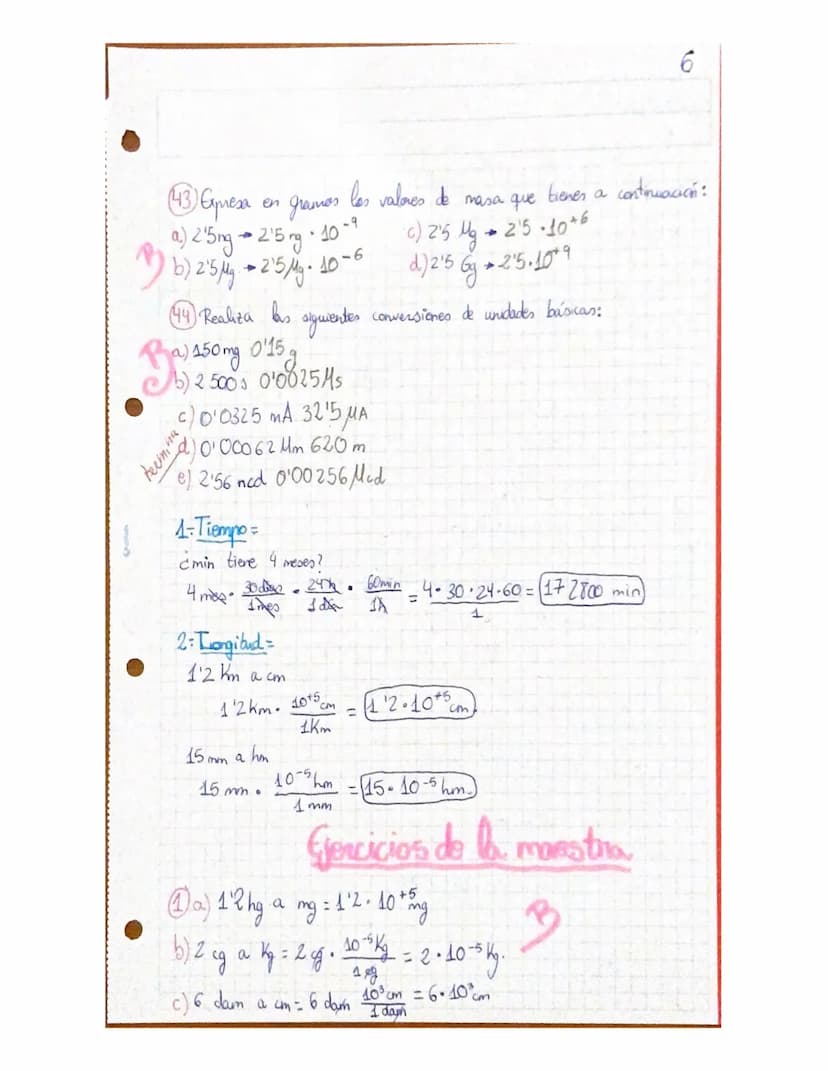 6
43) Expresa en gramos los valores de masa que tienes a continuación:
a) 2'5 ng → 2'5 ng · 10⁻⁹ c) 2'5 Mg → 2'5 · 10⁺⁶
B b) 2'5 μg → 2'5 μg · 10⁻⁶ d) 2'5 Gg → 2'5 · 10⁺⁹
44) Realiza las siguientes conversiones de unidades básicas:
B a) 150 mg 0'15 g
b) 2 500 s 0'0025 Ms
c) 0'0325 mA 32'5 μA
termina d) 0'00062 Mm 620 m
e) 2'56 ncd 0'00256 μcd
1-Tiempo=
¿min tiene 4 meses?
4 mes · 30 días/1 mes · 24 h/1 día · 60 min/1h = 4 · 30 · 24 · 60/1 = 172800 min
2-Longitud=
1'2 Km a cm
1'2 km · 10⁺⁵ cm/1 Km = 1'2 · 10⁺⁵ cm.
15 mm a hm
15 mm · 10⁻⁵ hm/1 mm = 15 · 10⁻⁵ hm.
Ejercicios de la maestra
1 a) 1'2 hg a mg = 1'2 · 10⁺⁵ mg B
b) 2 cg a Kg = 2 cg · 10⁻⁵ Kg/1 cg = 2 · 10⁻⁵ Kg.
c) 6 dam a cm = 6 dam 10³ cm/1 dam = 6 · 10³ cm